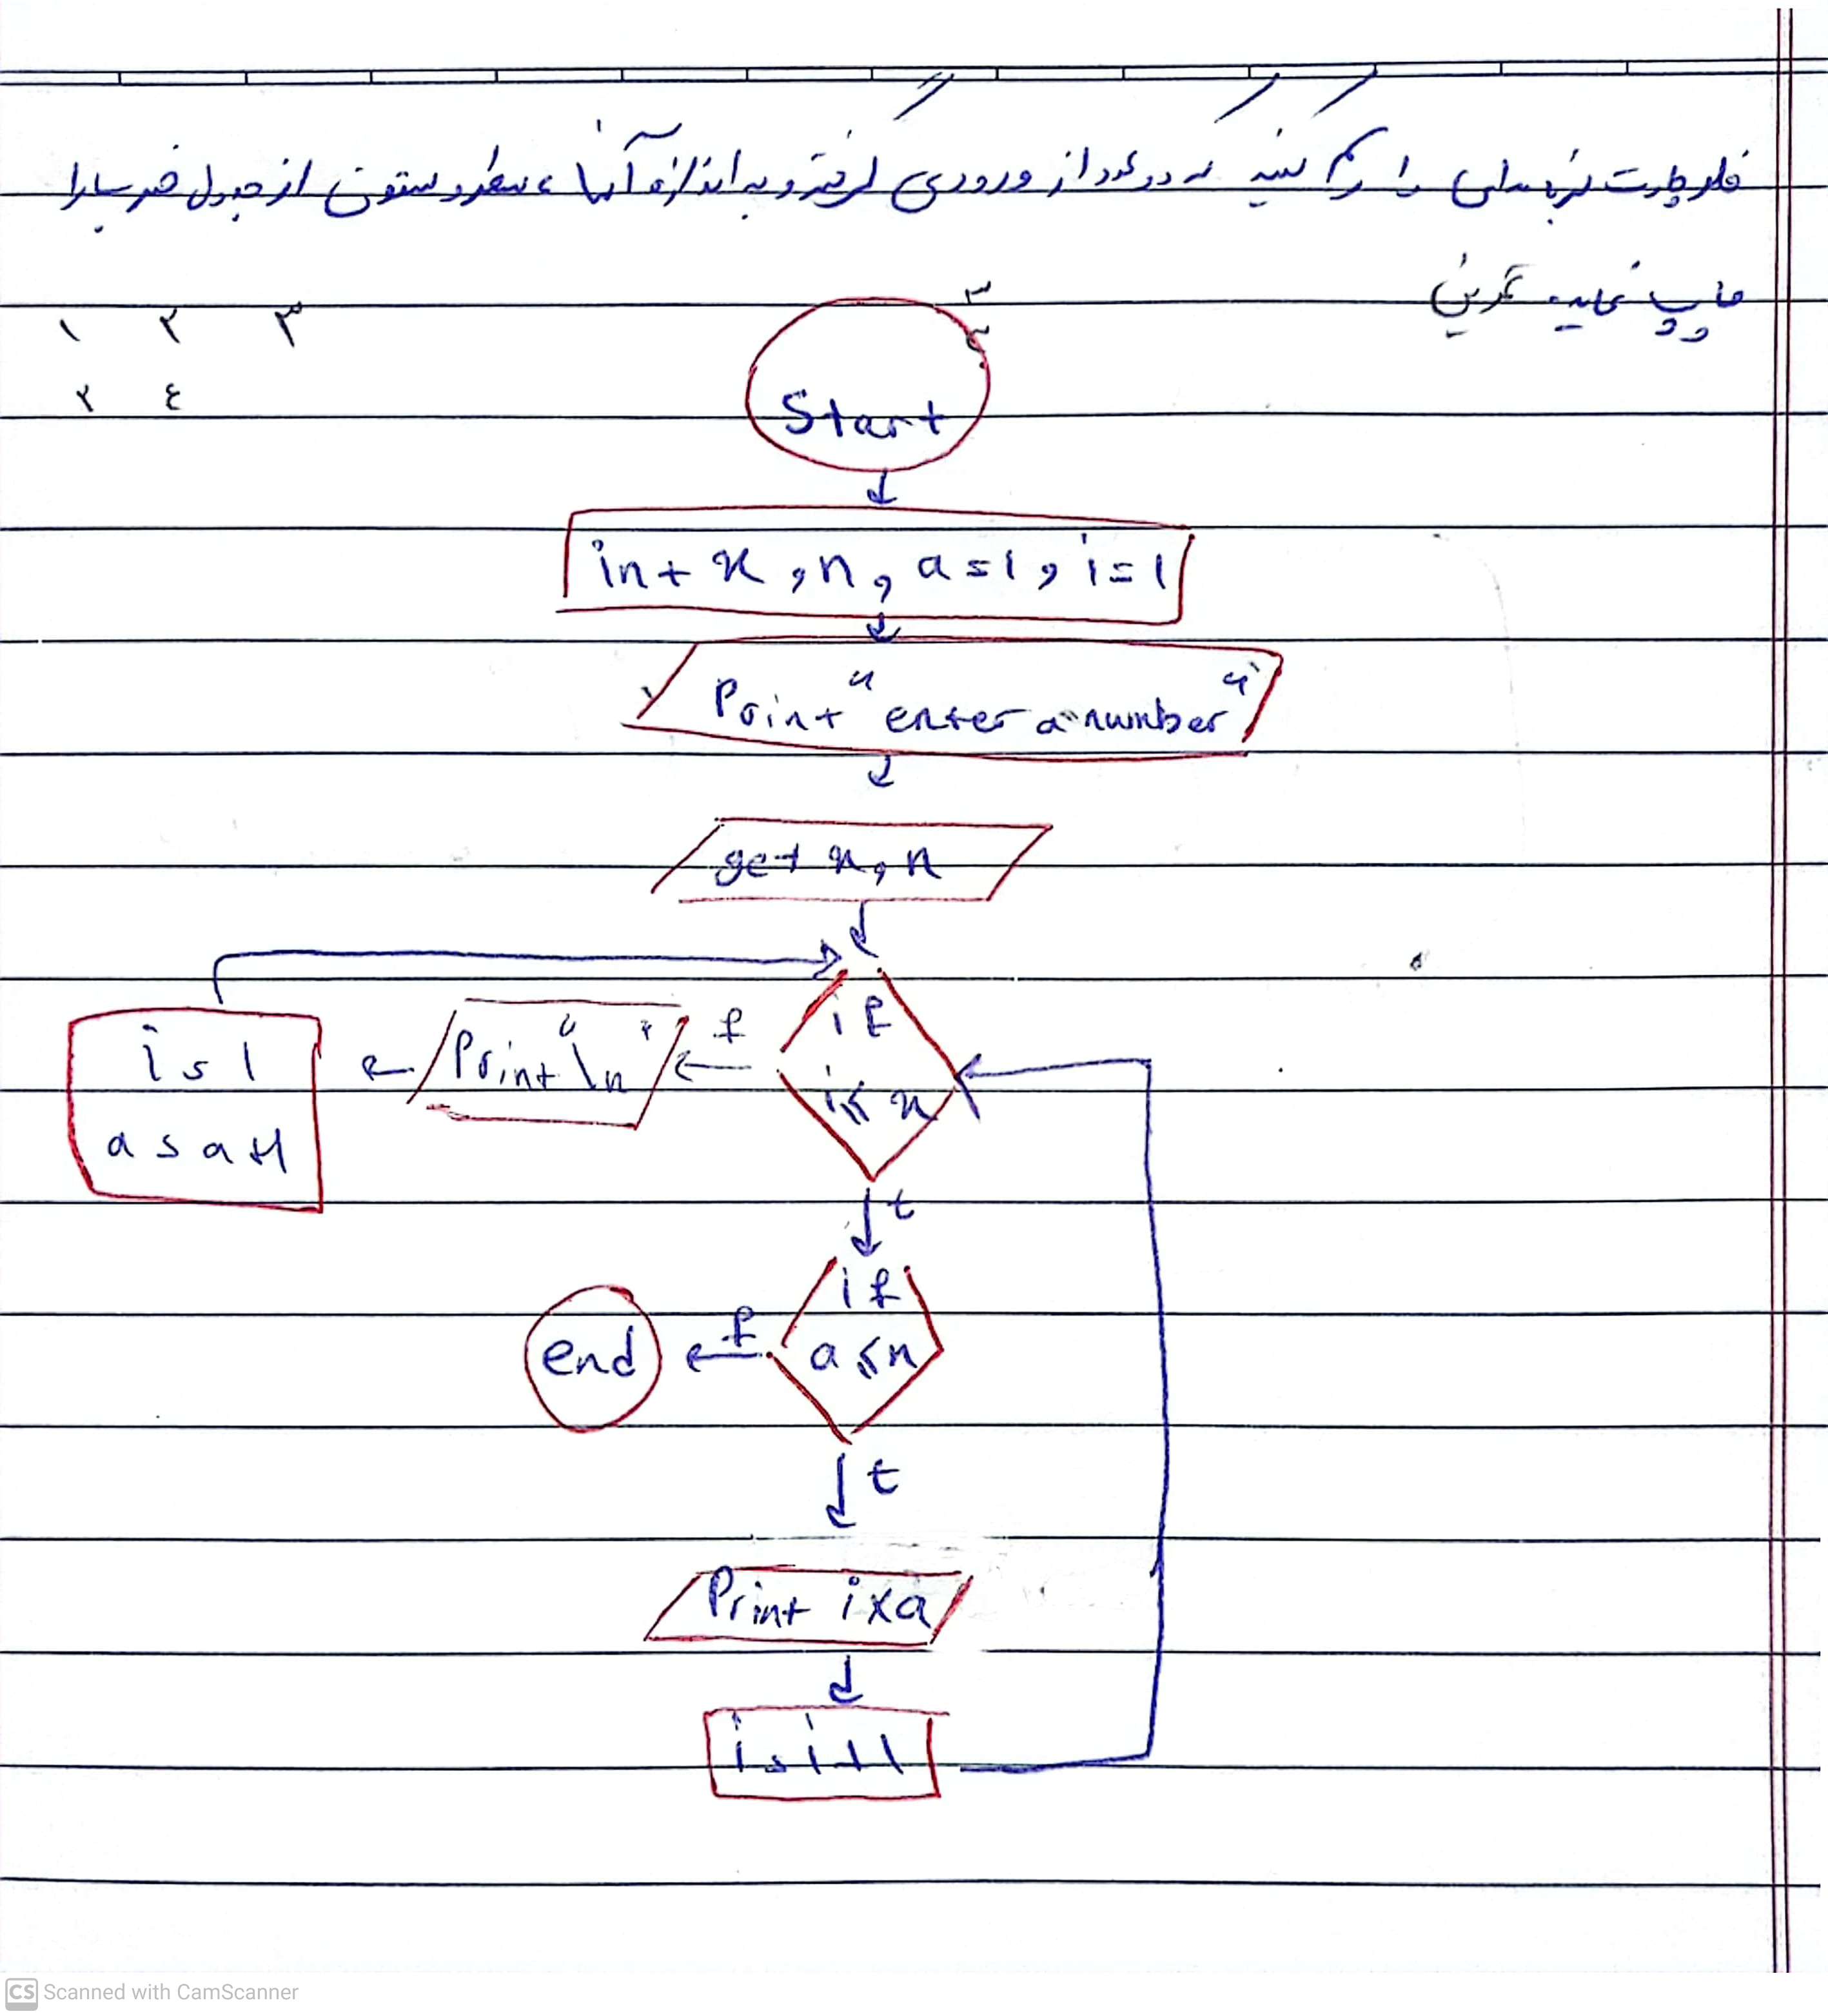 فلوچارت برنامه‌ای را رسم کنید که دو عدد از ورودی گرفته و به اندازه آنها، سطر و ستون از جدول ضرب را
چاپ نماید تمرین
۱ ۲ ۳
۲ ٤
Start
int x, n, a=1, i=1
Print "enter a number"
get x, n
if
i≤x
f
Print "\n"
i=1
a=a+1
t
if
a≤n
f
end
t
Print i×a
i=i+1
CS Scanned with CamScanner